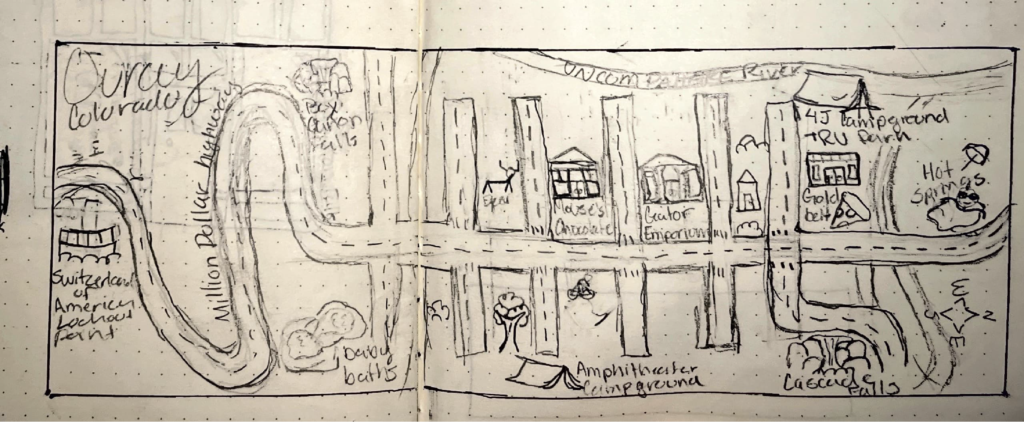 Ouray
Colorado
Million Dollar highway
Box Canon
Falls
UNCOMPAHGRE River
4J Campground
+RV Park
Hot
Springs
Mouse's
Chocolate
Gator
Emporium
Gold
belt
Switzerland
of
America
Lookout
Point
baby
baths
Amphitheater
Campground
Cascade
Falls
N
E